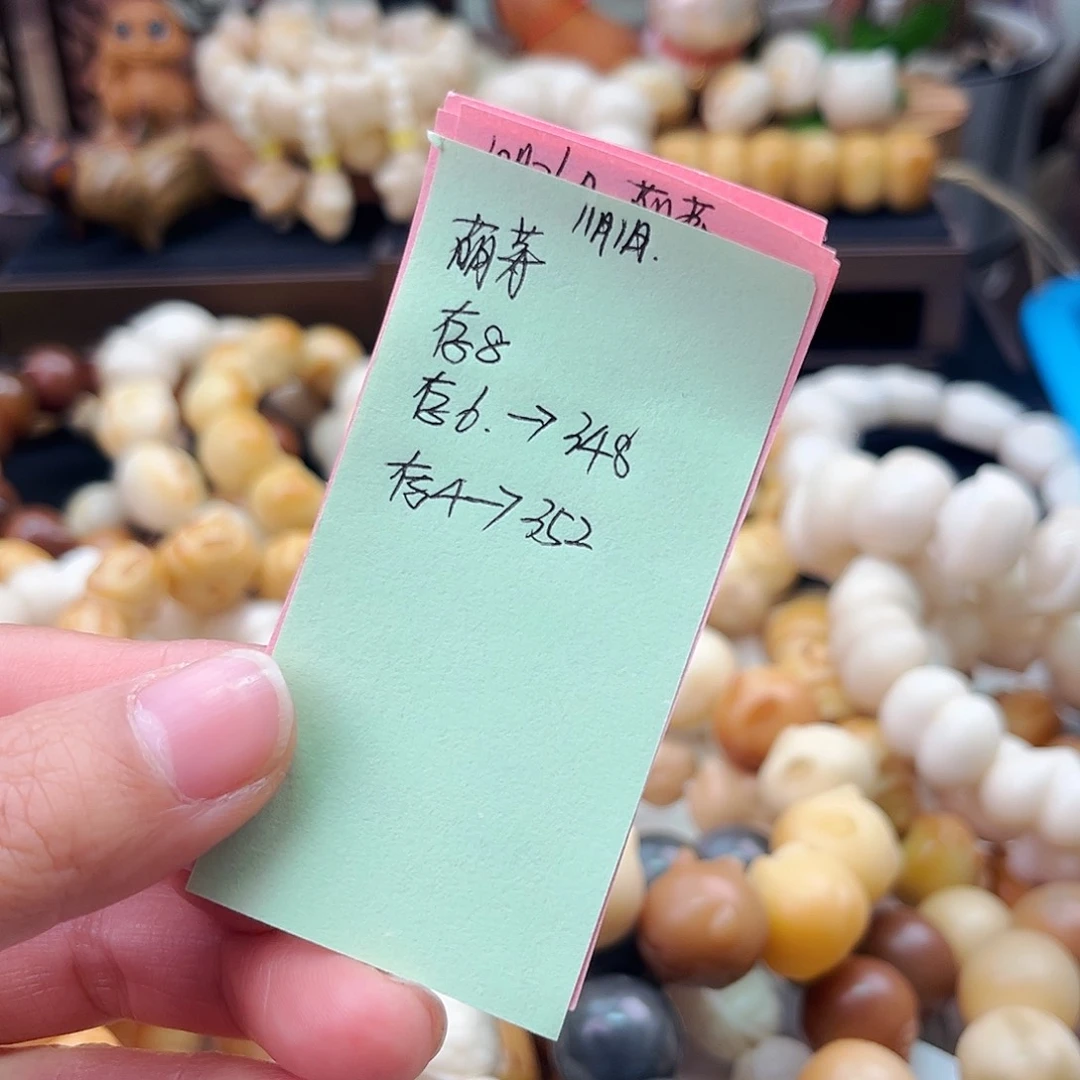 11月1日.
萌芽
存8
存6. → 348
存4 → 352